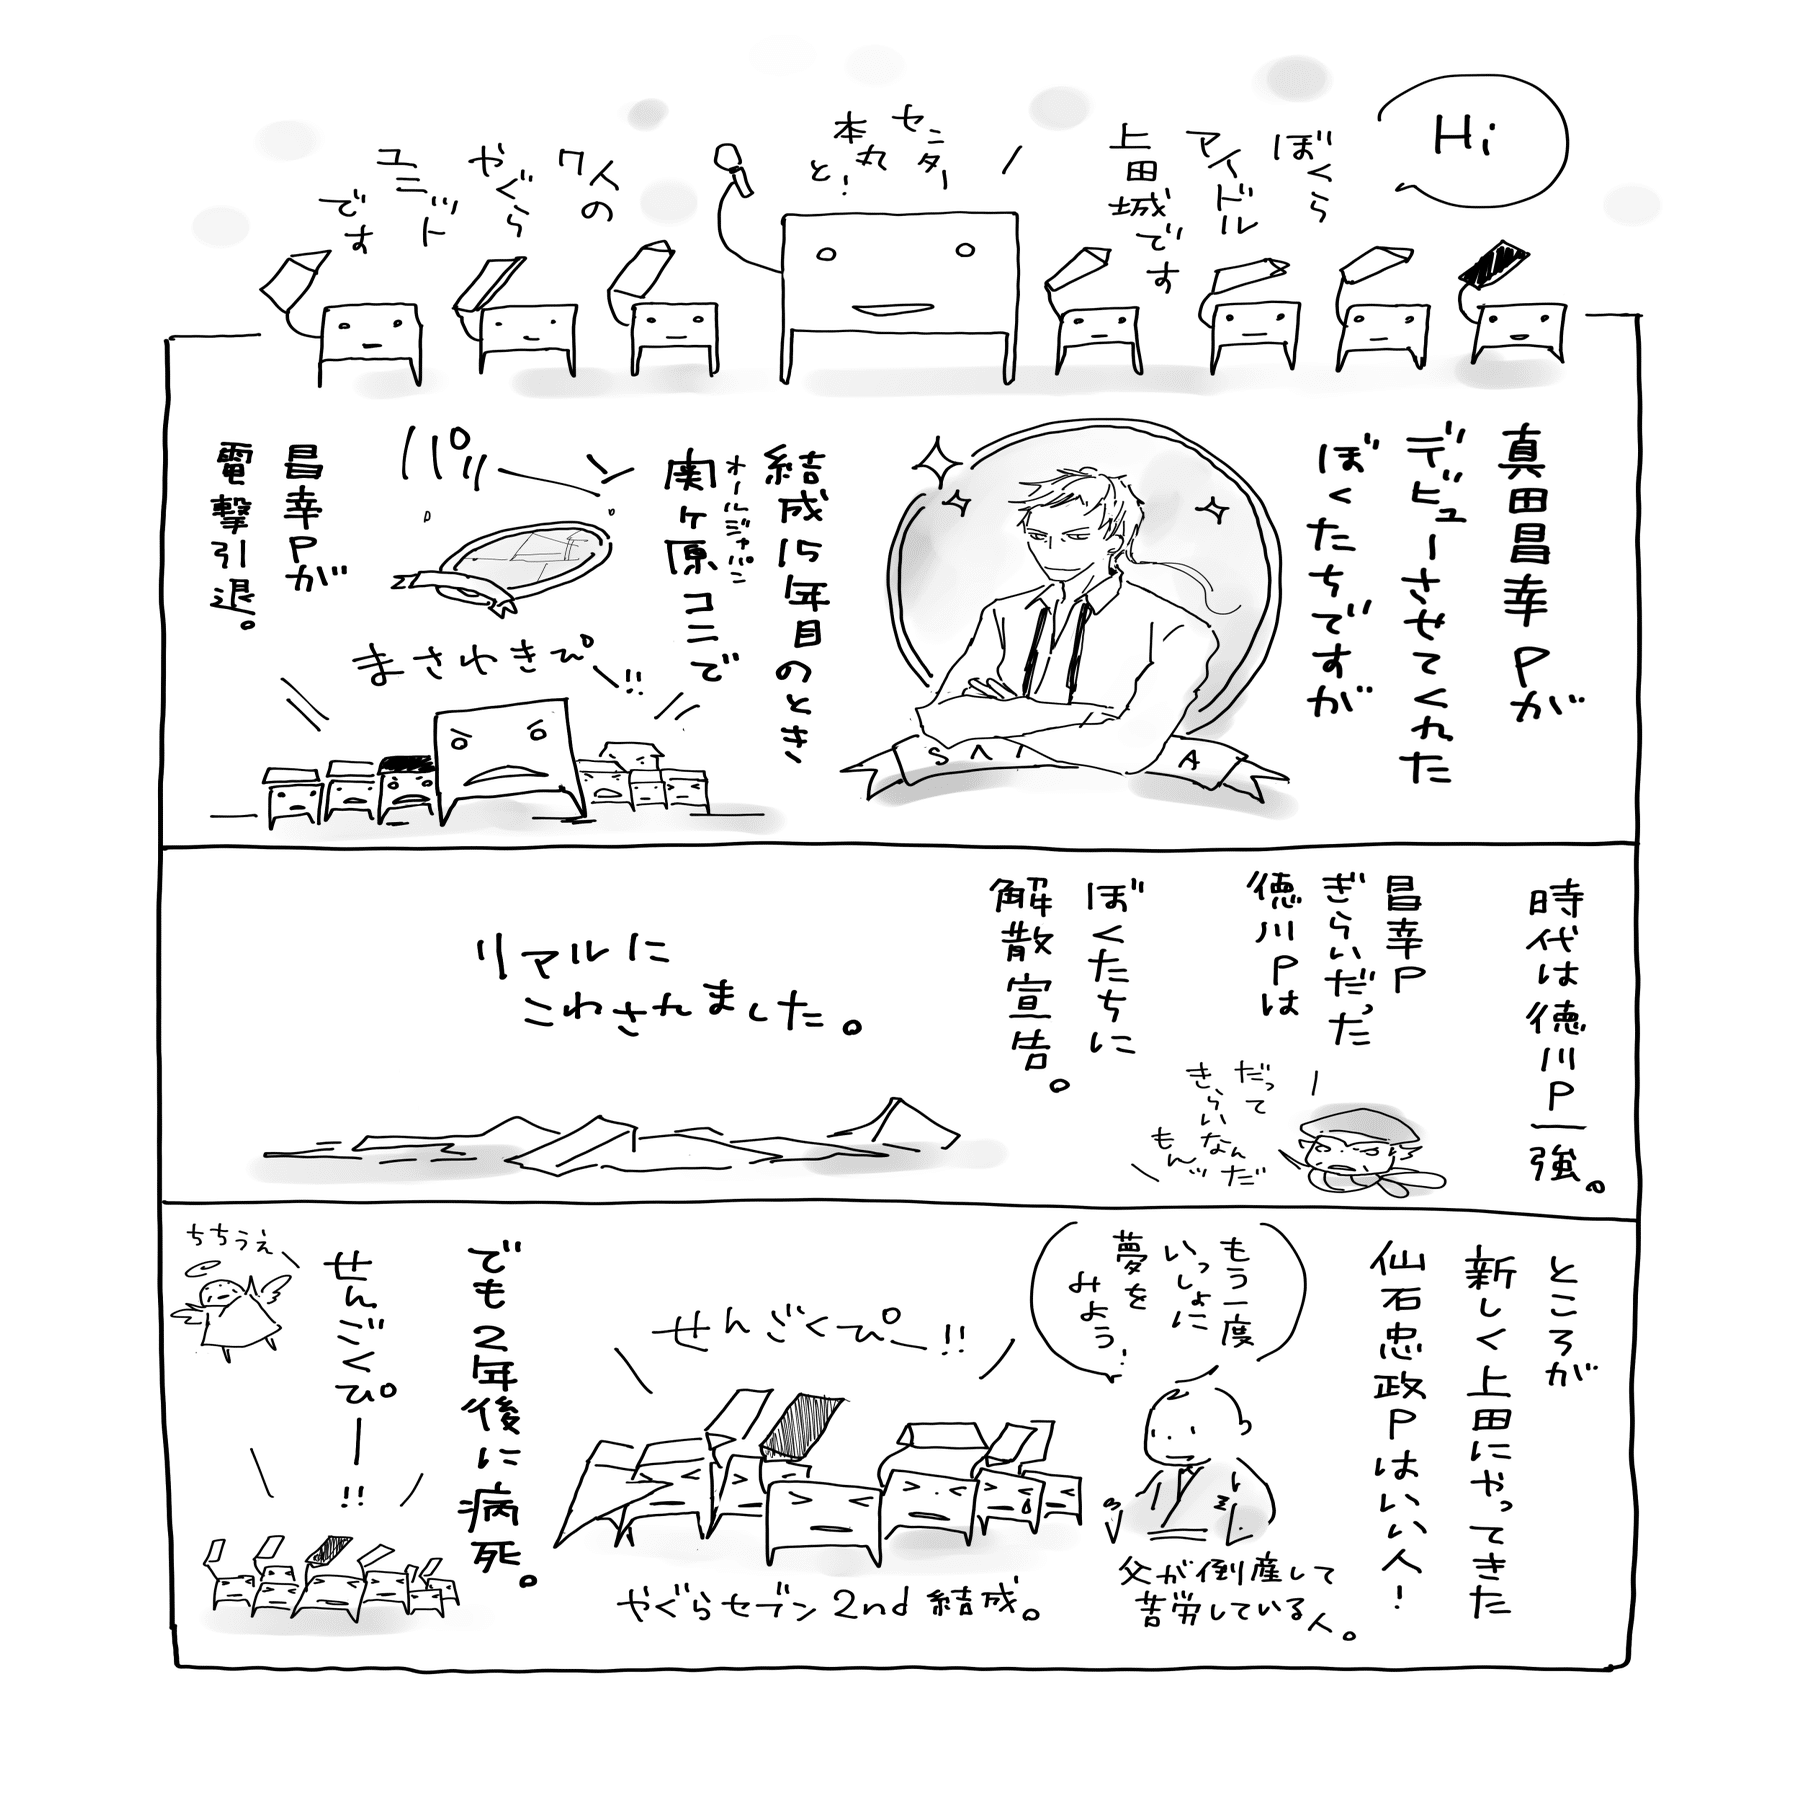 Hi
ぼくら
アイドル
上田城です
センター
本丸
と!
7人の
やぐら
ユニット
です
真田昌幸Pが
デビューさせてくれた
ぼくたちですが
結成15年目のとき
オールジャパン
関ヶ原コニで
パリーン
昌幸Pが
電撃引退。
まさゆきぴー!!
時代は徳川P一強。
昌幸P
ぎらいだった
徳川Pは
だって
きらいなんだ
もんッ
ぼくたちに
解散宣告。
リアルに
こわされました。
ところが
新しく上田にやってきた
仙石忠政Pはいい人!
もう一度
いっしょに
夢を
みよう!
父が倒産して
苦労している人。
せんごくぴー!!
やぐらセブン 2nd 結成。
でも2年後に病死。
せんごくぴー!!
ちちうえ